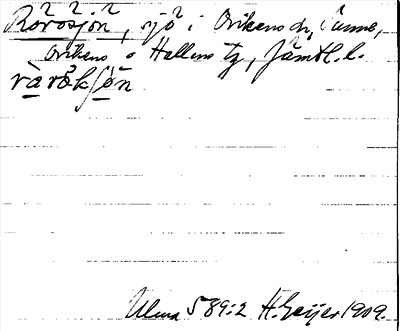 Rörösjön, sjö i Ovikens sn,
Ovikens o Hallens tg, Jämtl. l.
Ulma 589:2 H. Geijer 1909.